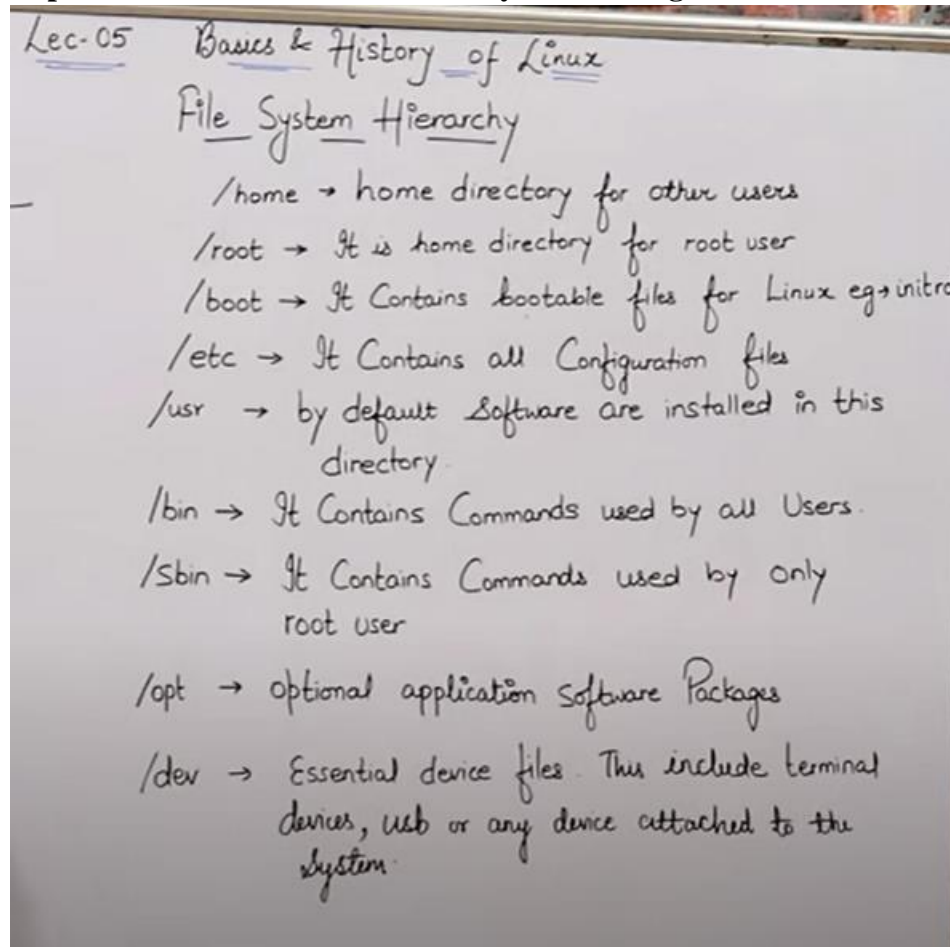 Lec-05 Basics & History of Linux
File System Hierarchy
/home → home directory for other users
/root → It is home directory for root user
/boot → It Contains bootable files for Linux eg→initr
/etc → It Contains all Configuration files
/usr → by default Software are installed in this
directory.
/bin → It Contains Commands used by all Users.
/Sbin → It Contains Commands used by only
root user
/opt → optional application Software Packages
/dev → Essential device files. This include terminal
devices, usb or any device attached to the
System.